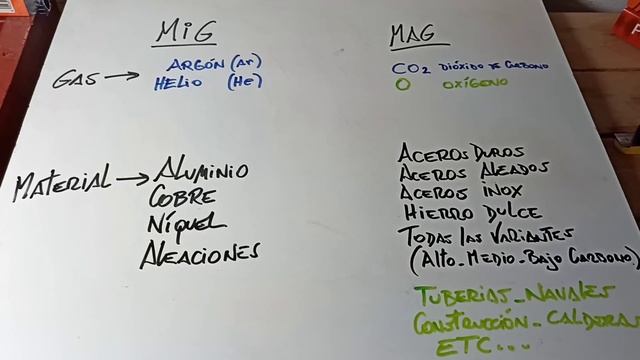 MiG
MAG
GAS → ARGÓN (Ar)
HELIO (He)
CO2 DIÓXIDO DE CARBONO
O OXÍGENO
MATERIAL → ALUMINIO
COBRE
NÍQUEL
ALEACIONES
ACEROS DUROS
ACEROS ALEADOS
ACEROS INOX
HIERRO DULCE
TODAS LAS VARIANTES
(ALTO-MEDIO-BAJO CARDONO)
TUBERIAS-NAVALES
CONSTRUCCIÓN-CALDERAS
ETC...